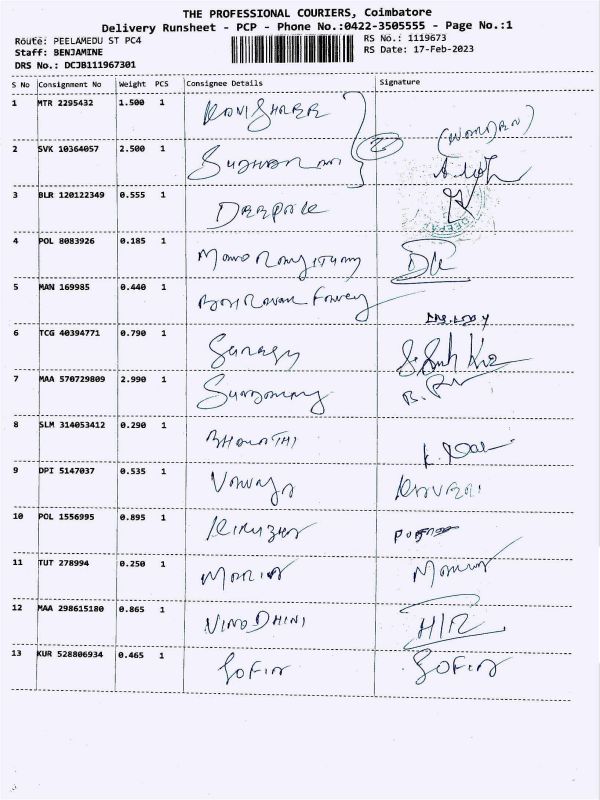 THE PROFESSIONAL COURIERS, Coimbatore
Delivery Runsheet - PCP - Phone No.:0422-3505555 - Page No.:1
Route: PEELAMEDU ST PC4
RS No.: 1119673
Staff: BENJAMINE
RS Date: 17-Feb-2023
DRS No.: DCJB111967301
S No Consignment No Weight PCS Consignee Details Signature
1 MTR 2295432 1.500 1
(WARDEN)
2 SVK 10364057 2.500 1
3 BLR 120122349 0.555 1 DEEPAK
DEEPA
4 POL 8083926 0.185 1
5 MAN 169985 0.440 1
6 TCG 40394771 0.790 1
7 MAA 570729809 2.990 1
8 SLM 314053412 0.290 1 BHARATHI
9 DPI 5147037 0.535 1 KAVERI
10 POL 1556995 0.895 1
11 TUT 278994 0.250 1 MARIA
12 MAA 298615180 0.865 1 VINODHINI
13 KUR 528806934 0.465 1 SOFIA SOFIA